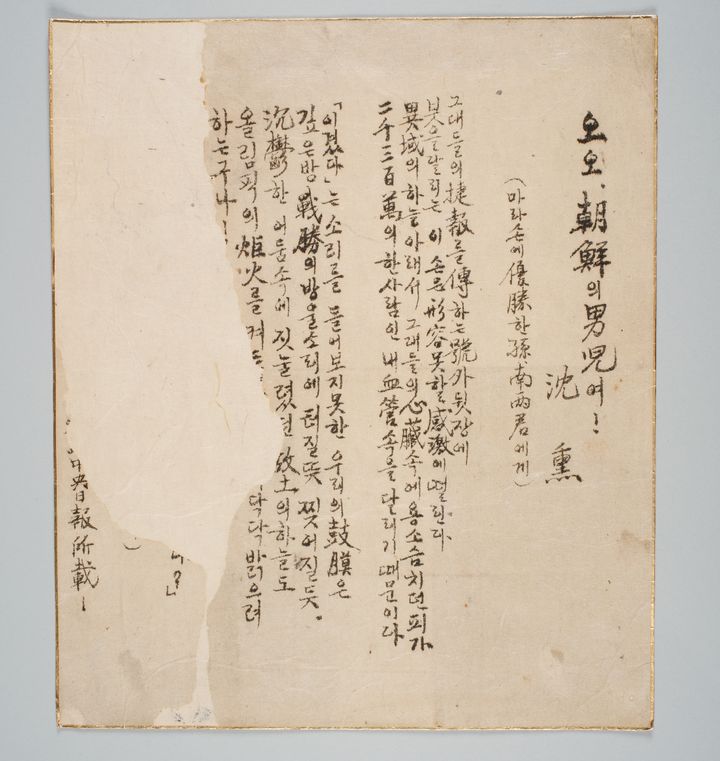 오오, 朝鮮의男児여!
沈熏
(마라손에優勝한孫南兩君에게)
그대들의捷報를傳하는號外뒷장에
붓을달리는 이 손은形容못하는感激에떨린다.
異域의하늘아래서 그대들의心臟속에용소슴치던피가
二千三百萬의한사람인내血管속을달리기때문이다
「이겼다」는소리를들어보지못한우리의鼓膜은
깊은밤戰勝의방울소리에터질듯 찢어질듯。
沈鬱한어둠속에짓눌렸던故土의하늘도
올림픽의炬火를켜든 닥닥밝으려
하는구나!
央日報所載!